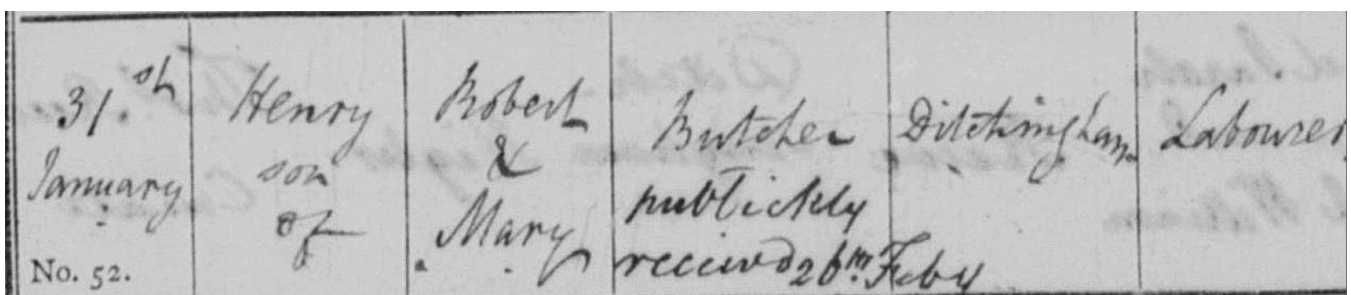 31.st
January
No. 52.
Henry
son
of
Robert
&
Mary
Butcher
publickly
received 26th Feby
Ditchingham
Labourer